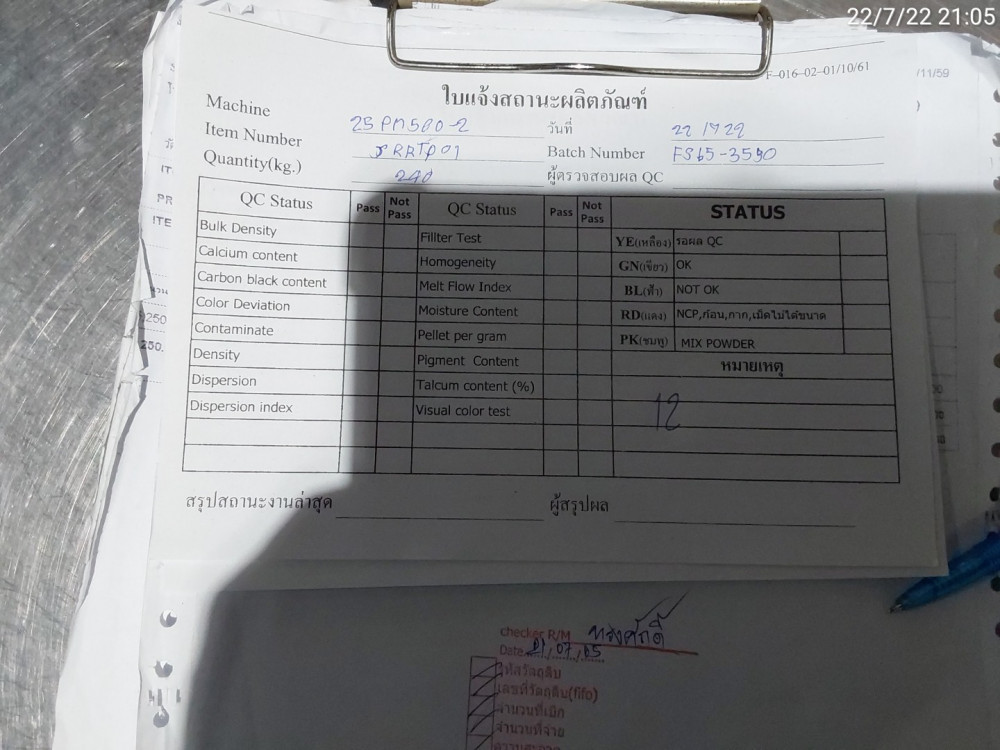 22/7/22 21:05
F-016-02-01/10/61
/11/59
ใบแจ้งสถานะผลิตภัณฑ์
Machine 25 PM500-2 วันที่ 22 /7 22
Item Number Batch Number FS65-3590
Quantity(kg.) 240 ผู้ตรวจสอบผล QC
QC Status Pass Not Pass QC Status Pass Not Pass STATUS
Bulk Density Fillter Test YE(เหลือง) รอผล QC
Calcium content Homogeneity GN(เขียว) OK
Carbon black content Melt Flow Index BL(ฟ้า) NOT OK
Color Deviation Moisture Content RD(แดง) NCP,ก้อน,กาก,เม็ดไม่ได้ขนาด
Contaminate Pellet per gram PK(ชมพู) MIX POWDER
Density Pigment Content หมายเหตุ
Dispersion Talcum content (%)
Dispersion index Visual color test 12
สรุปสถานะงานล่าสุด ผู้สรุปผล
checker R/M ทรงศักดิ์
Date 21/07/65
รหัสวัตถุดิบ
เลขที่วัตถุดิบ(fifo)
จำนวนที่เบิก
จำนวนที่จ่าย